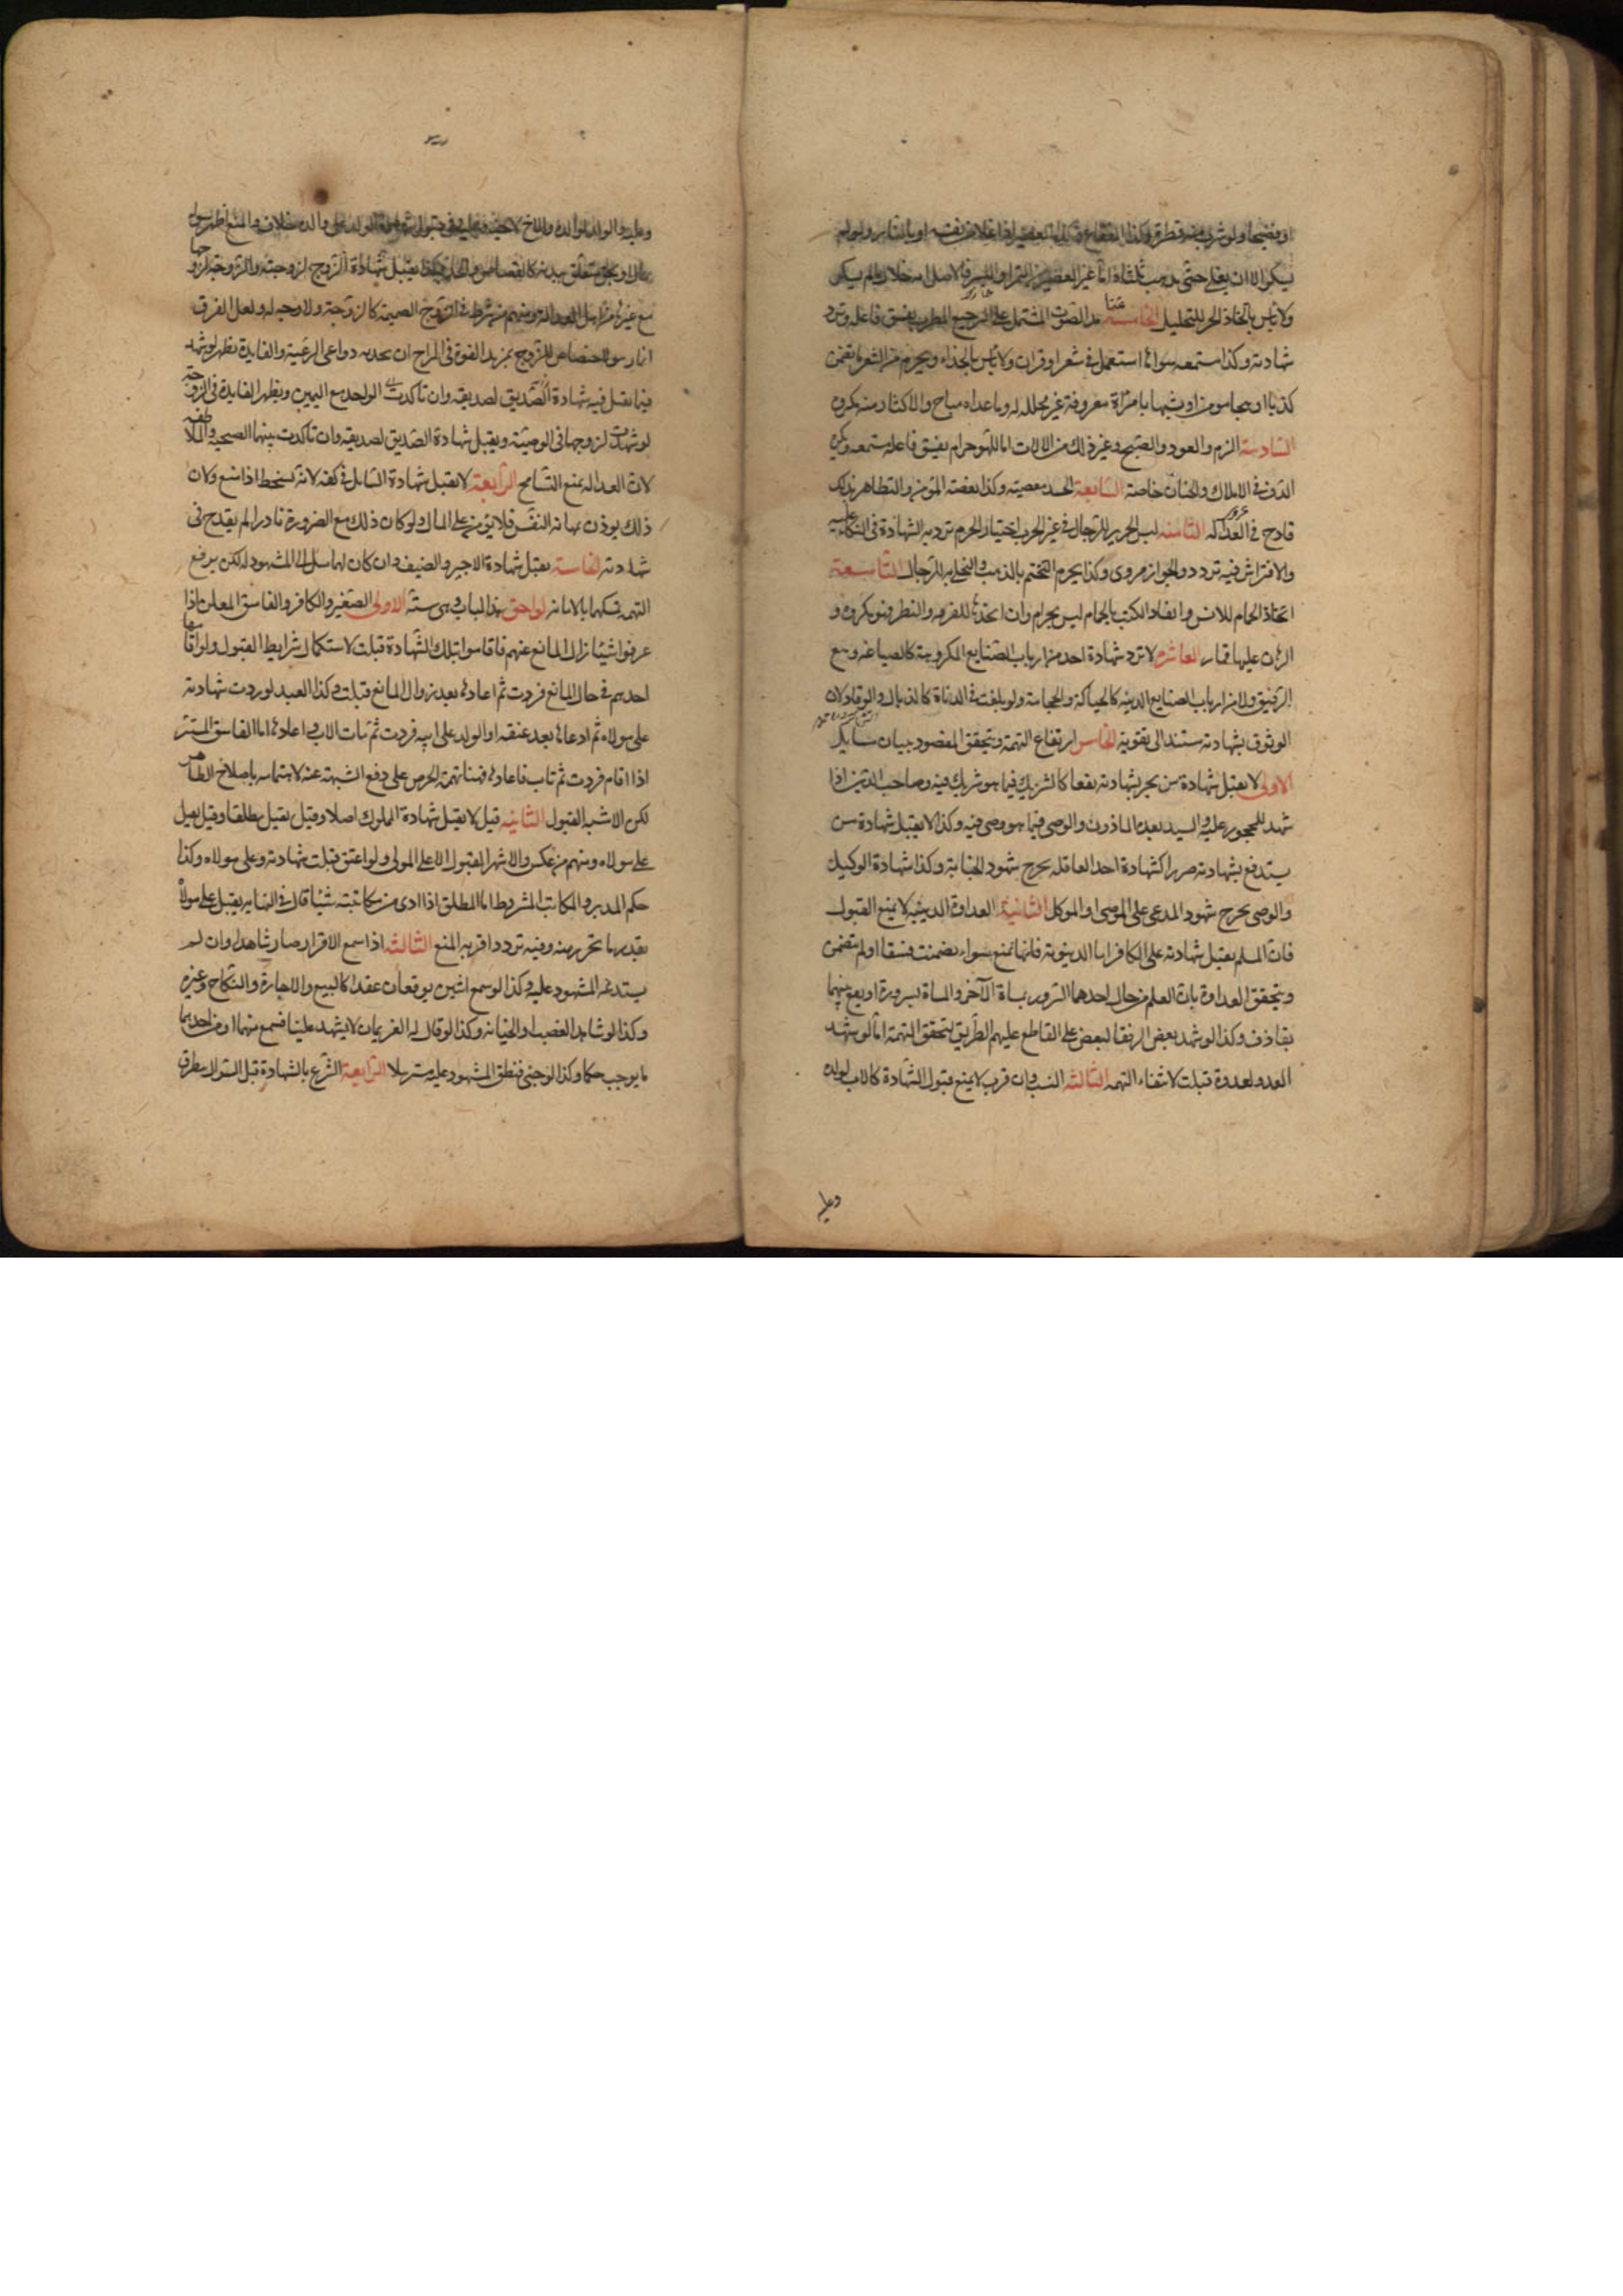 او فضيخا ولو شرب منه قطرة وكذا الفقاع وكذا العصير اذا غلا من نفسه او بالنار ولو لم
يسكر الا ان يغلي حتى يذهب ثلثاه اما غير العصير من التمر او البسر فالاصل انه حلال ما لم يسكر
ولا باس باتخاذ الخمر للتخليل الخامسة مد الصوت المشتمل على الترجيع المطرب يفسق فاعله وترد
غنا
شهادته وكذا مستمعه سواء استعمل في شعر او قران ولا باس بالحداء ويحرم من الشعر ما تضمن
كذبا او هجا مؤمن او تشبيها بامراة معروفة غير محللة له وما عداه مباح والاكثار منه مكروه
السادسة الزمر والعود والصنج وغير ذلك من الالات اما اللهو حرام يفسق فاعله ومستمعه ويكره
الدف في الاملاك والختان خاصة السابعة الحسد معصية وكذا بغضة المؤمن والتظاهر بذلك
قادح في العدالة الثامنة لبس الحرير للرجال في غير الحرب اختيارا محرم ترد به الشهادة وفي التكاء عليه
والافتراش فيه تردد والجواز مروي وكذا يحرم التختم بالذهب والتحلي به للرجال التاسعة
اتخاذ الحمام للانس وانفاذ الكتب بالحمام ليس بحرام وان اتخذها للفرجه والتطير فهو مكروه و
الرهان عليها قمار العاشره لا ترد شهادة احد من ارباب الصنايع المكروهة كالصياغه وبيع
الرقيق ولا من ارباب الصنايع الدنيه كالحياكة والحجامة ولو بلغت في الدناة كالزبال والوقاد لان
الوثوق بشهادته مستند الى تقويه الخامس ارتفاع التهمة ويتحقق المقصود ببيان مسايل
الاولى لا يقبل شهادة من يجر بشهادته نفعا كالشريك فيما هو شريك فيه وصاحب الدين اذا
شهد للمحجور عليه والسيد بعبده الماذون والوصي فيما هو وصي فيه وكذا لا يقبل شهادة من
يستدفع بشهادته ضررا كشهادة احد العاقله بجرح شهود الجناية وكذا شهادة الوكيل
والوصي بجرح شهود المدعي على الموصي او الموكل الثانية العداوة الدينيه لا تمنع القبول
فان المسلم يقبل شهادته على الكافر اما الدنيوية فانها تمنع سواء تضمنت فسقا او لم تتضمن
ويتحقق العداوة بان يعلم من حال احدهما السرور بمساة الاخر والمساة بسروره او يقع بينهما
تقاذف وكذا لو شهد بعض الرفقا لبعض على القاطع عليهم الطريق لتحقق التهمة اما لو شهد
العدو لعدوه قبلت لانتفاء التهمه الثالثه النسب وان قرب لا يمنع قبول الشهادة كالاب لولده
وعليه
وعليه والولد لوالده والاخ لاخيه وعليه وفي قبول شهادة الولد على والده خلاف والمنع اظهر سواء
بمال او بحق متعلق ببدنه كالقصاص والحد وكذا يقبل شهادة الزوج لزوجته والزوجة لزوجها
مع غيرها من اهل العدالة ومنهم من شرط في الزوج الضميمة كالزوجة ولا وجه له ولعل الفرق
انما هو لاختصاص الزوج بمزيد القوة في المزاج ان يجذبه دواعي الرغبة والفايدة تظهر لو شهد
فيما يقبل فيه شهادة الواحد مع اليمين ويظهر الفايدة في الزوجة
لو شهدت لزوجها في الوصية ويقبل شهادة الصديق لصديقه وان تاكدت بينهما الصحبه والملاطفه
لان العدالة تمنع التسامح الرابعة لا يقبل شهادة السايل في كفه لانه يسخط اذا منع ولان
ذلك يوذن بمهانه النفس فلا يؤمن على المال ولو كان ذلك مع الضرورة نادرا لم يقدح في
شهادته الخامسة يقبل شهادة الاجير والضيف وان كان لهما ميل الى المشهود له لكن يرفع
التهمه تمسكهما بالامانه لواحق هذا الباب وهي ستة الاولى الصغير والكافر والفاسق المعلن اذا
عرفوا شيئا ثم زال المانع عنهم فاقاموا تلك الشهادة قبلت لاستكمال شرايط القبول ولو اقامها
احدهم في حال المانع فردت ثم اعادها بعد زوال المانع قبلت وكذا العبد لو ردت شهادته
على مولاه ثم ادعاها بعد عتقه او الولد على ابيه فردت ثم مات الاب واعادها اما الفاسق المستتر
اذا اقام فردت ثم تاب فاعادها فهنا تهمة الحرص على دفع الشبهة عنه لاهتمامه باصلاح الظاهر
لكن الاشبه القبول الثانيه قيل لا يقبل شهادة المملوك اصلا وقيل يقبل مطلقا وقيل يقبل
على مولاه ومنهم من عكس والاشهر القبول الا على المولى ولو اعتق قبلت شهادته وعلى مولاه وكذا
حكم المدبر والمكاتب المشروط اما المطلق اذا ادى من مكاتبته شيئا قال في النهايه يقبل على مولاه
بقدر ما تحرر منه وفيه تردد اقربه المنع الثالثه اذا سمع الاقرار صار شاهدا وان لم
يستدعه المشهود عليه وكذا لو سمع اثنين يوقعان عقدا كالبيع والاجارة والنكاح وغيره
وكذا لو شاهد الغصب او الجنايه وكذا لو قال له الغريمان لا تشهد علينا فسمع منهما او من احدهما
ما يوجب حكما وكذا لو خبي فنطق المشهود عليه مسترسلا الرابعة التبرع بالشهادة قبل السؤال يطرق